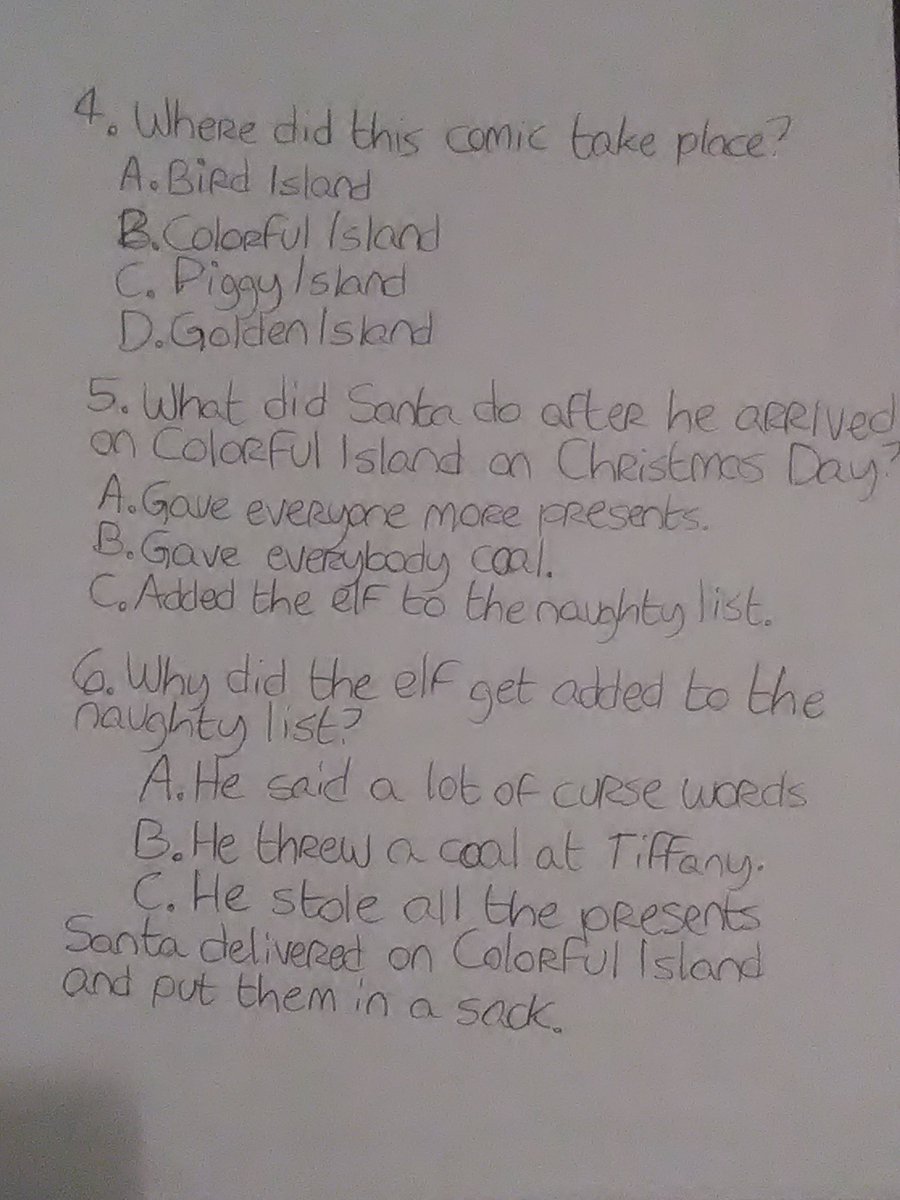 4. Where did this comic take place?
A. Bird Island
B. Colorful Island
C. Piggy Island
D. Golden Island
5. What did Santa do after he arrived
on Colorful Island on Christmas Day?
A. Gave everyone more presents.
B. Gave everybody coal.
C. Added the elf to the naughty list.
6. Why did the elf get added to the
naughty list?
A. He said a lot of curse words
B. He threw a coal at Tiffany.
C. He stole all the presents
Santa delivered on Colorful Island
and put them in a sack.